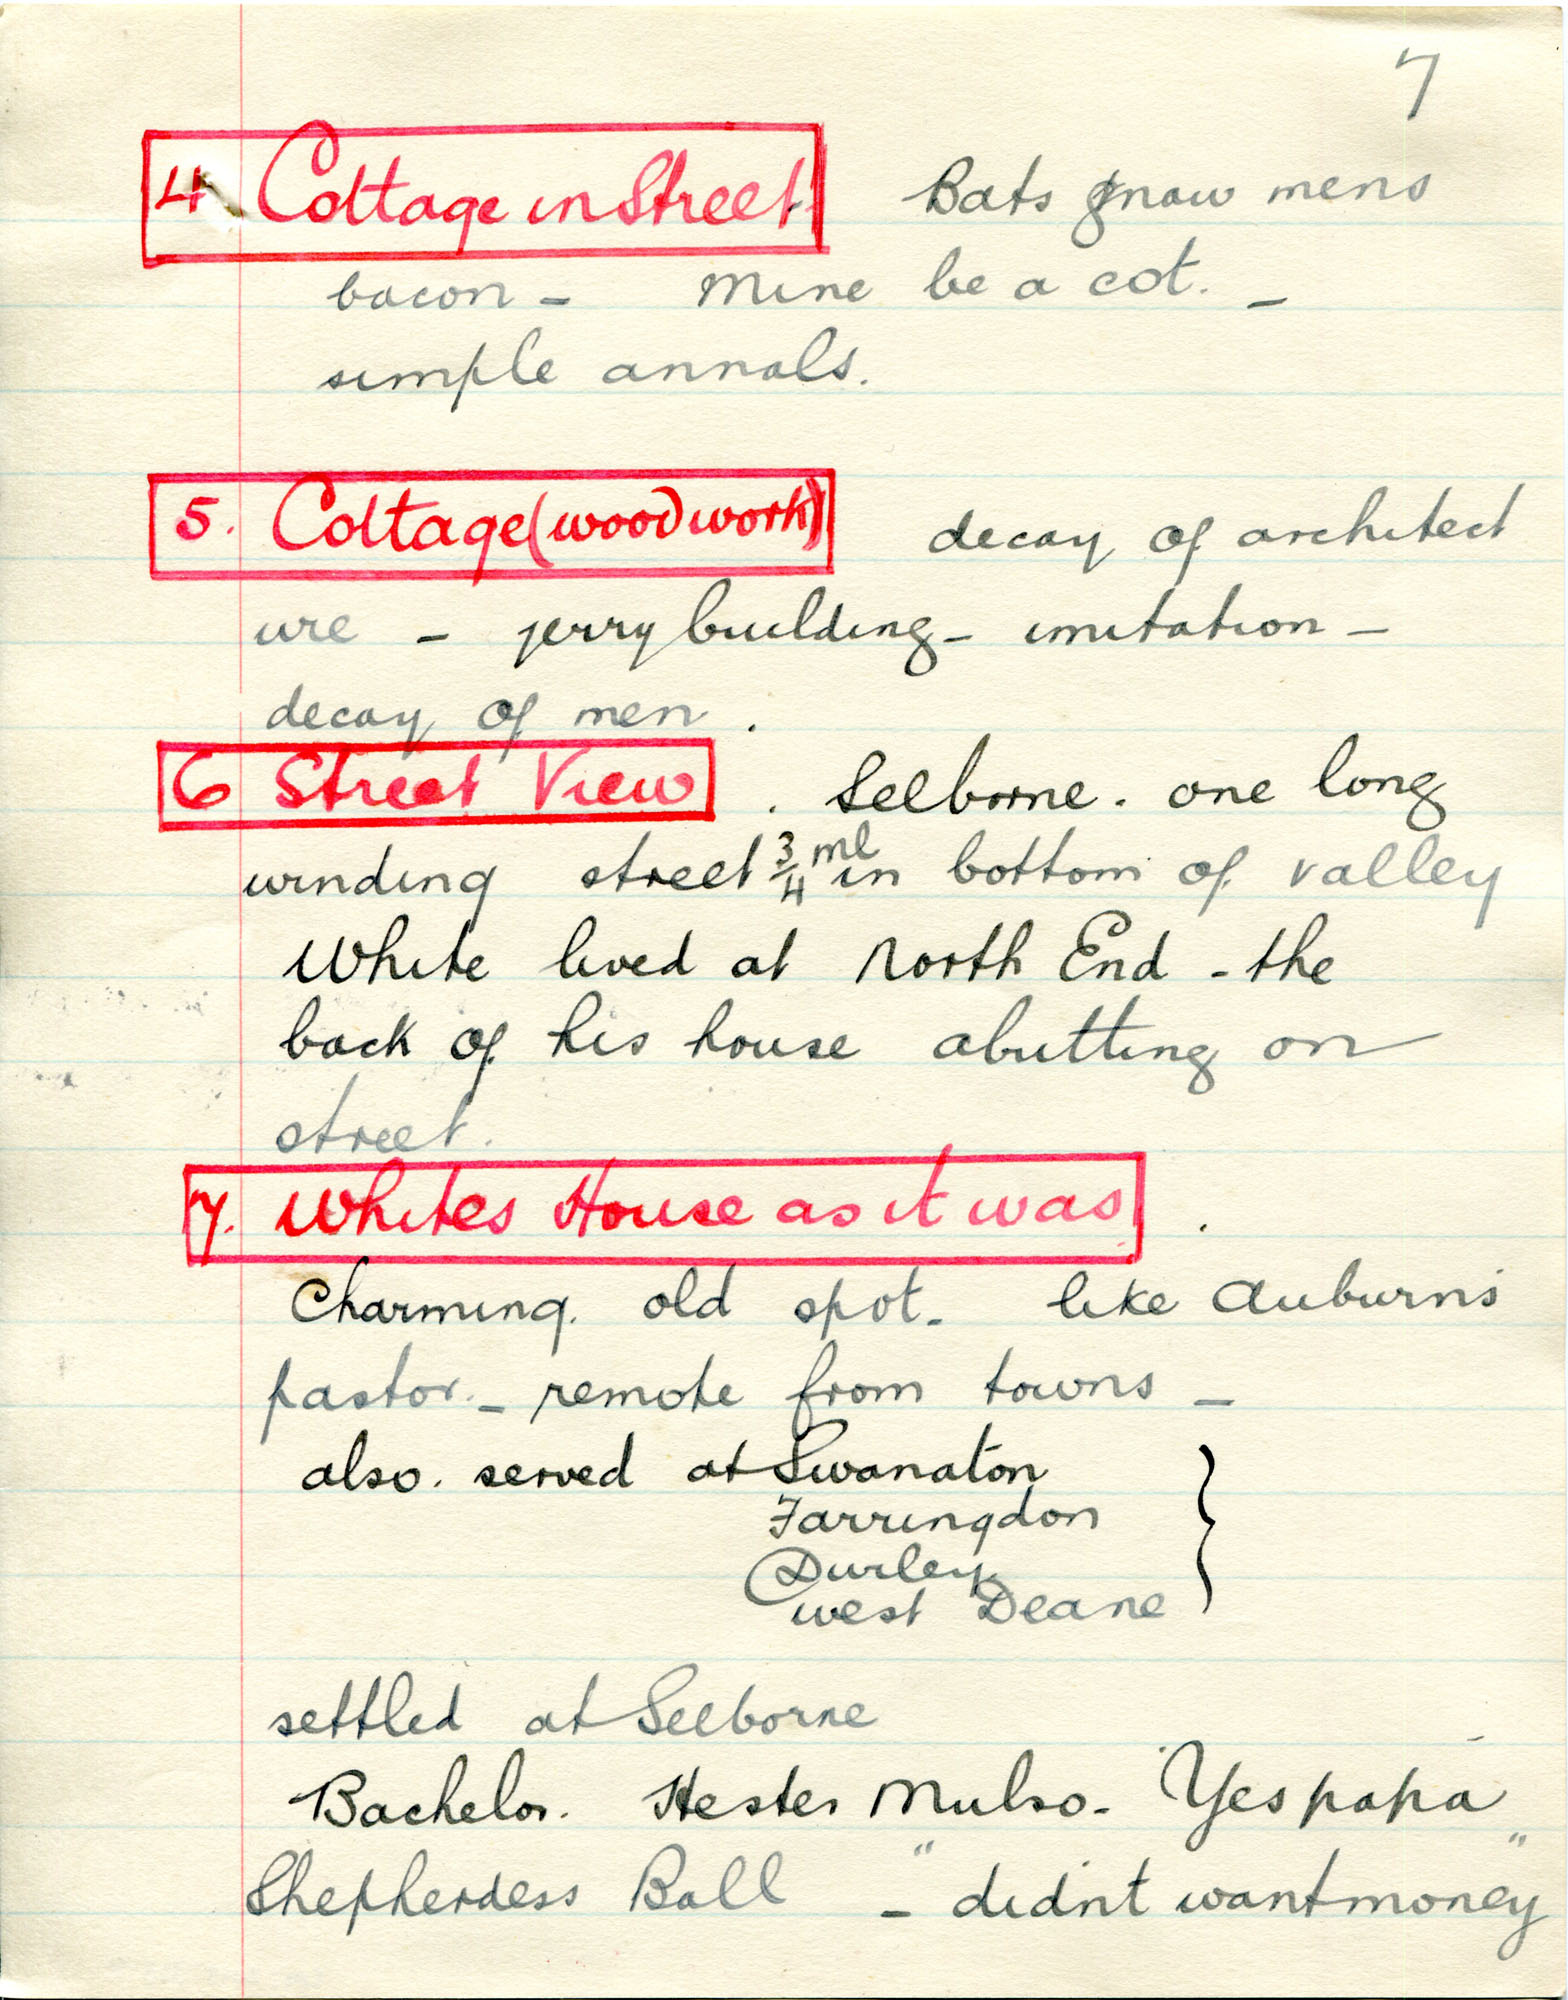 7
4 Cottage in Street Bats gnaw mens
bacon – Mine be a cot. –
simple annals.
5. Cottage (woodwork) decay of architect
ure – jerry building – imitation –
decay of men .
6 Street View . Selborne . one long
winding street 3/4 ml in bottom of valley
White lived at North End – the
back of his house abutting on
street.
7. Whites House as it was .
Charming old spot – like Auburn's
pastor. – remote from towns –
also. served at Swanaton
Farringdon
Durley
West Deane
settled at Selborne
Bachelor. Hester Mulso – "Yes papa"
Shepherdess Ball – "didn't want money"